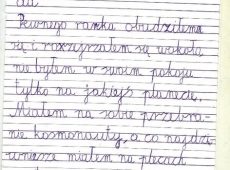 Pewnego ranka obudziłem
się i rozejrzałem się wokoło
nie byłem w swoim pokoju
tylko na jakiejś planecie.
Miałem na sobie przebra-
nie kosmonauty, a co najdzi-
wniejsze miałem na plecach